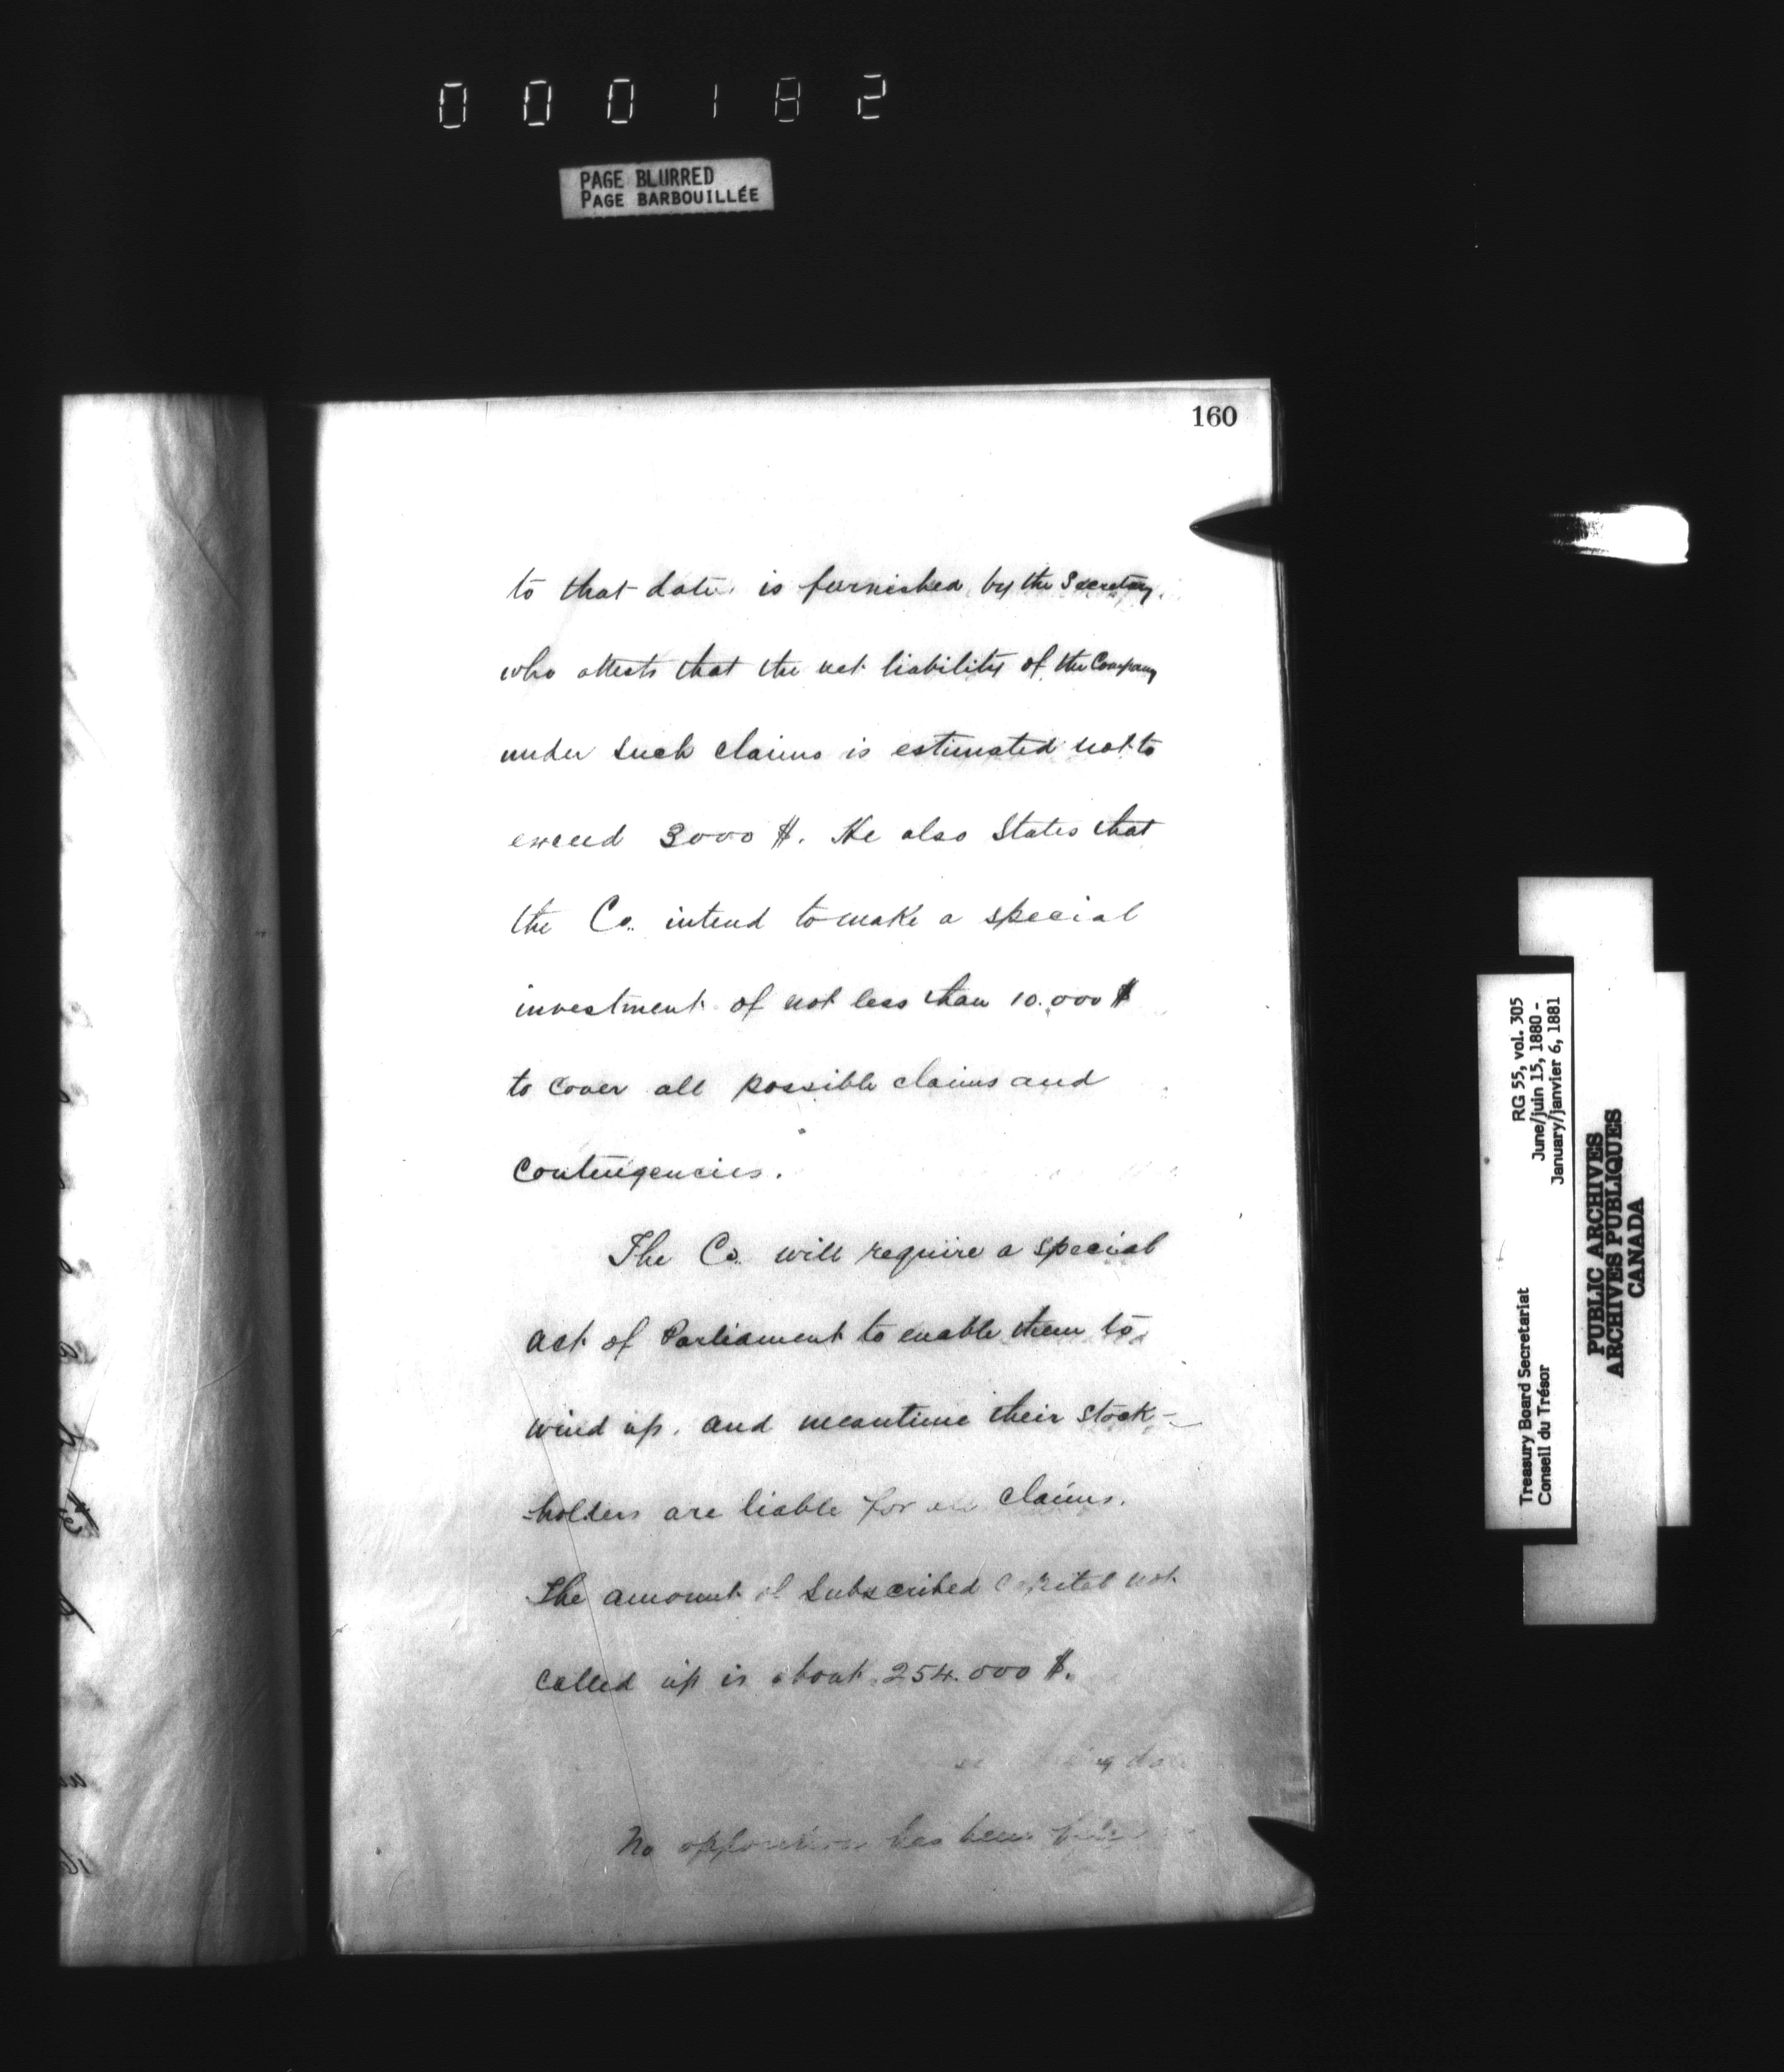 000182
PAGE BLURRED
PAGE BARBOUILLÉE
160
to that date is furnished by the Secretary
who attests that the net liability of the Company
under such claims is estimated not to
exceed 3000 $. He also States that
the Co. intend to make a special
investment of not less than 10.000 $
to cover all possible claims and
Contingencies.
The Co. will require a special
act of Parliament to enable them to
wind up, and meantime their stock-
-holders are liable for all claims.
The amount of Subscribed Capital not
called up is about 254.000 $.
No opposition has been
RG 55, vol. 305
June/juin 15, 1880 -
January/janvier 6, 1881
Treasury Board Secretariat
Conseil du Trésor
PUBLIC ARCHIVES
ARCHIVES PUBLIQUES
CANADA